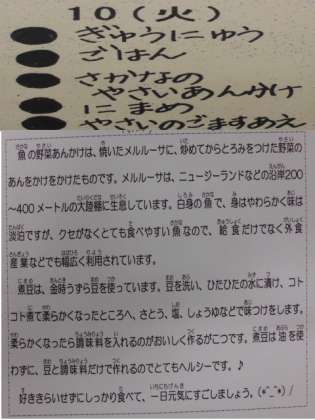 10(火)
ぎゅうにゅう
ごはん
さかなの
やさいあんかけ
にまめ
やさいのごますあえ
魚の野菜あんかけは、焼いたメルルーサに、炒めてからとろみをつけた野菜の
あんをかけをかけたものです。メルルーサは、ニュージーランドなどの沿岸200
～400メートルの大陸棚に生息しています。白身の魚で、身はやわらかく味は
淡泊ですが、クセがなくとても食べやすい魚なので、給食だけでなく外食
産業などでも幅広く利用されています。
煮豆は、金時うずら豆を使っています。豆を洗い、ひたひたの水に漬け、コト
コト煮て柔らかくなったところへ、さとう、塩、しょうゆなどで味つけをします。
柔らかくなったら調味料を入れるのがおいしく作るがこつです。煮豆は油を使
わずに、豆と調味料だけで作れるのでとてもヘルシーです。♪
好ききらいせずにしっかり食べて、一日元気にすごしましょう。(*^_^*)/